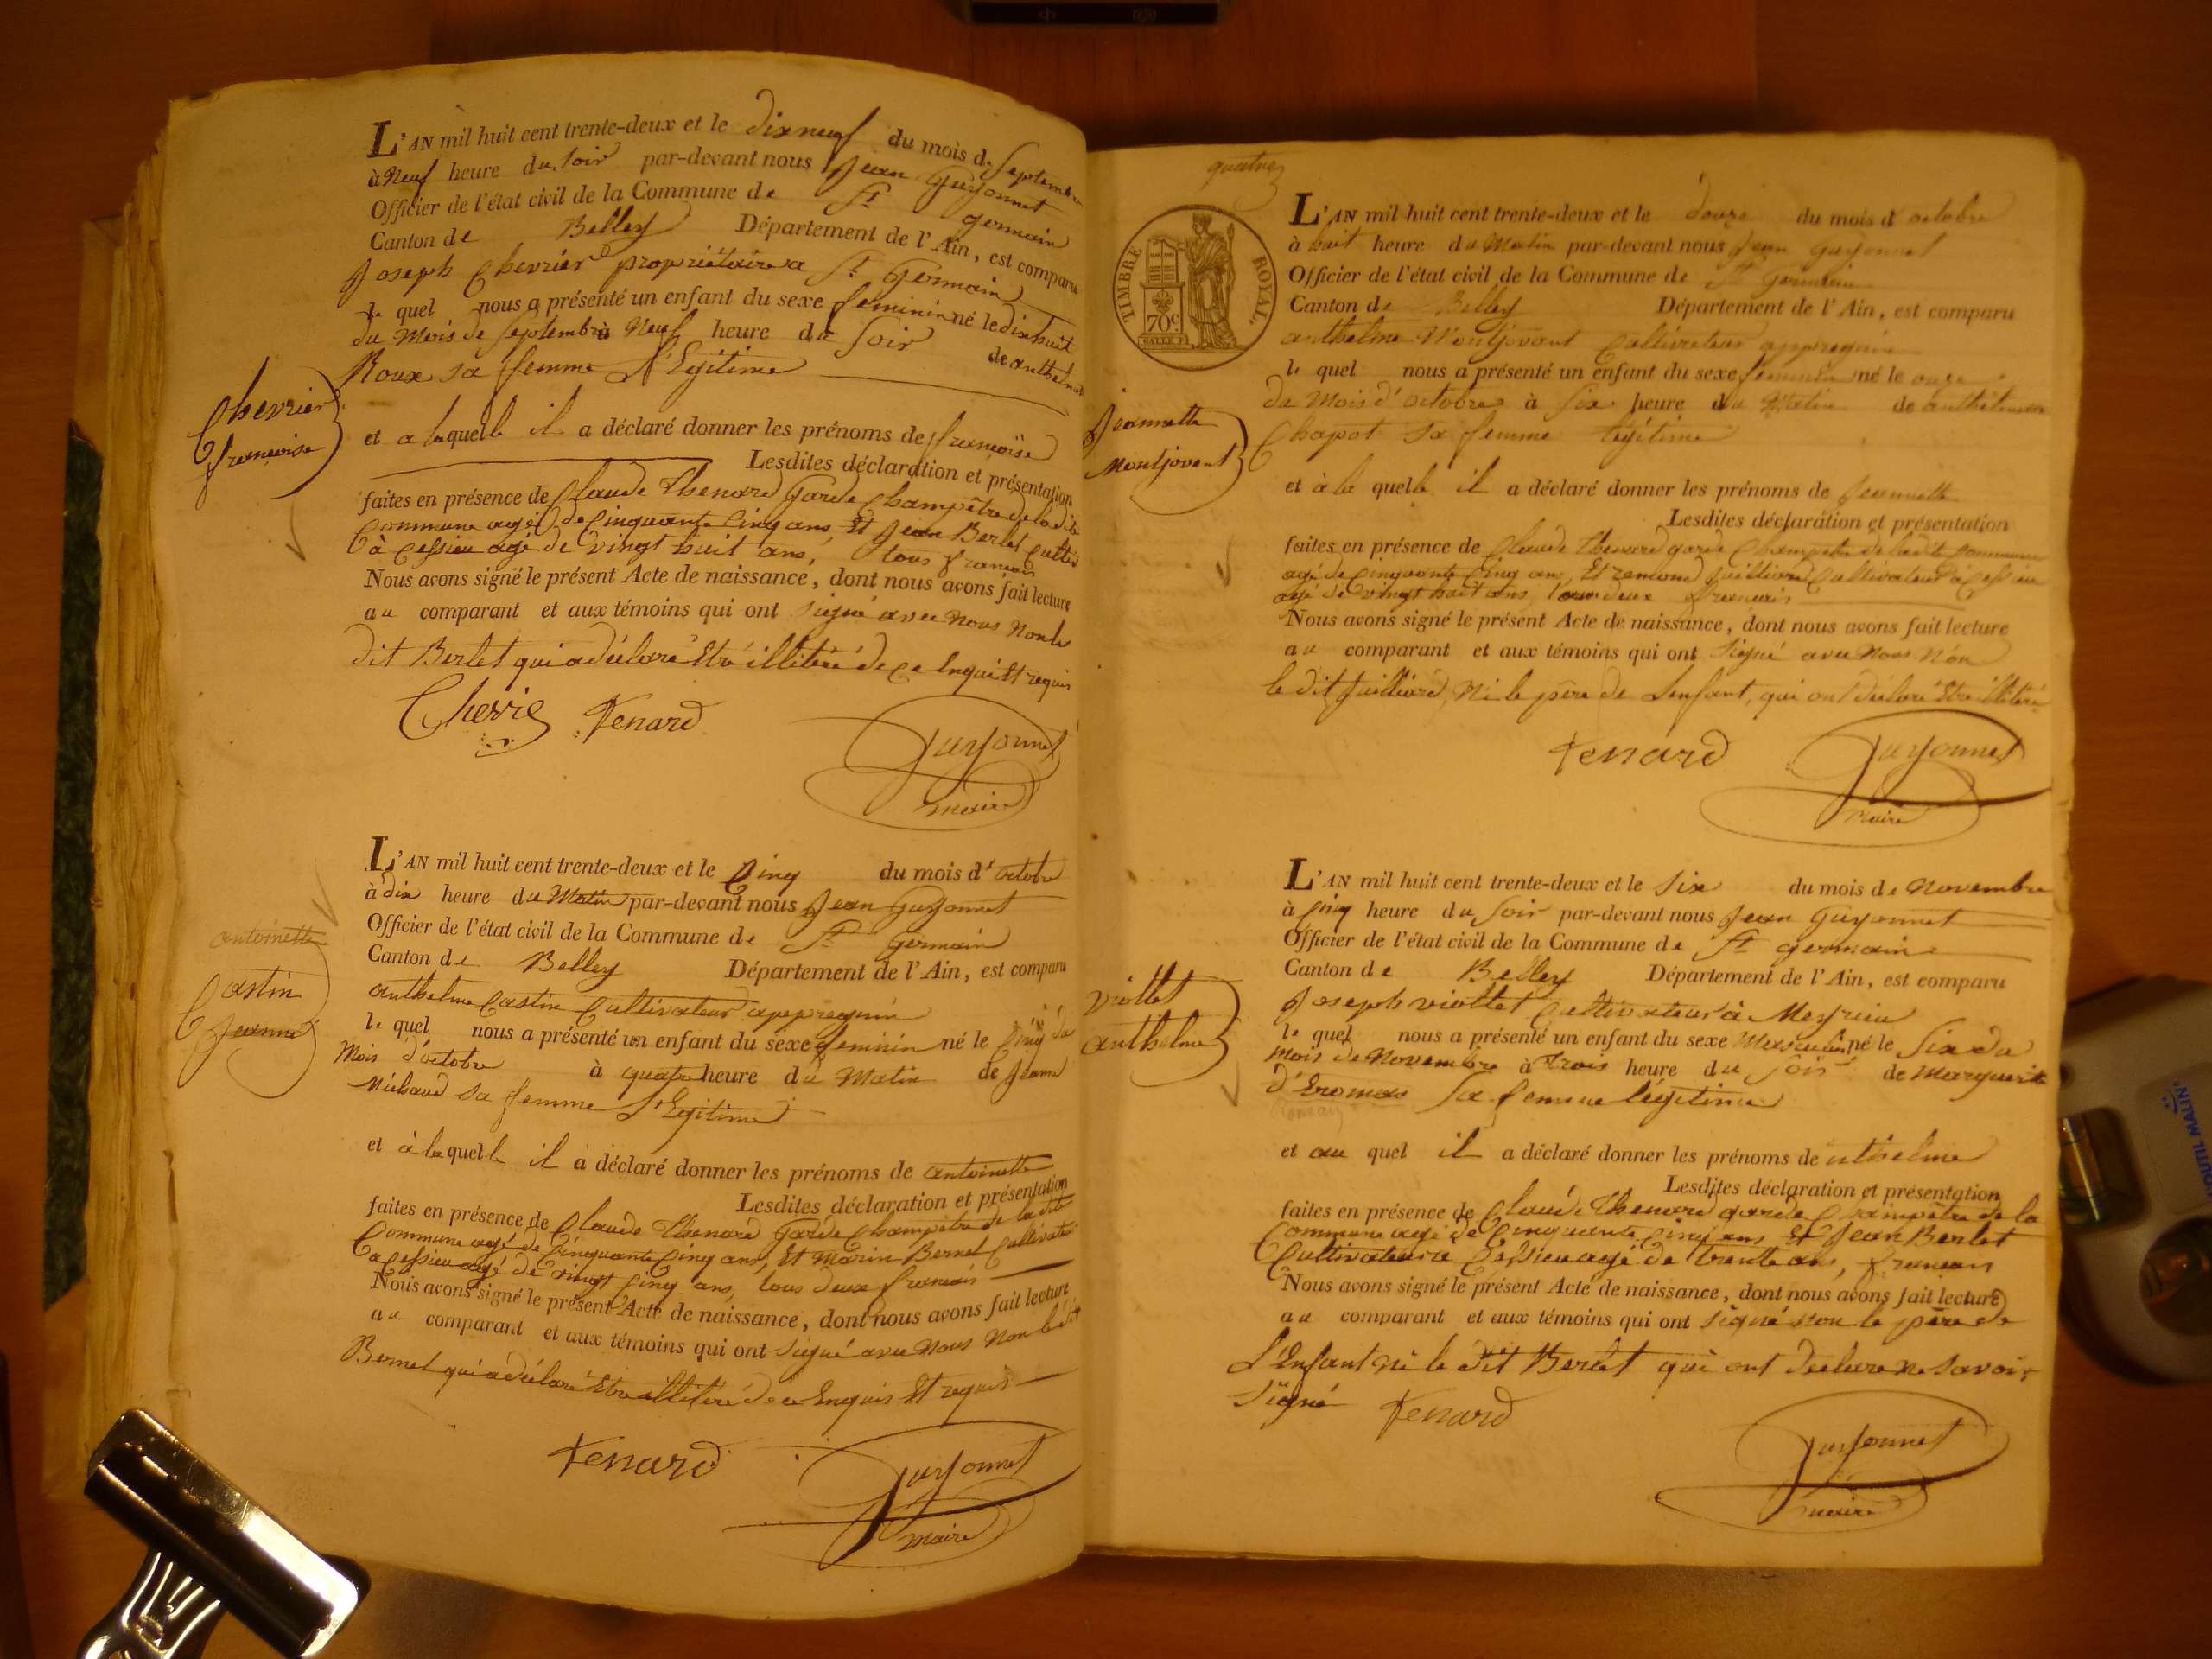 L'AN mil huit cent trente-deux et le dix neuf du mois de Septembre
à Neuf heure du Soir par-devant nous Jean Guyonnet
Officier de l'état civil de la Commune de St germain
Canton de Belley Département de l'Ain, est comparu
Joseph Chevrier propriétaire a St Germain
le quel nous a présenté un enfant du sexe feminin né le dix huit
du Mois de Septembre à Neuf heure du Soir de anthelmette
Roux sa femme l'Egitime
Chevrier
francoise
et a laquelle il a déclaré donner les prénoms de francoise
Lesdites déclaration et présentation
faites en présence de Claude Thenard Garde Champêtre de la dite
Commune agé de Cinquante Cinq ans, Et Jean Berlet Cultiv
à Cessieu agé de vingt huit ans, tous francais
Nous avons signé le présent Acte de naissance, dont nous avons fait lecture
au comparant et aux témoins qui ont signé avec Nous Non le
dit Berlet qui a déclaré Etre illitéré de ce Enquis Et requis
Chevrie Tenard
Guyonnet
maire
L'AN mil huit cent trente-deux et le Cinq du mois d'octobre
à dix heure du Matin par-devant nous Jean Guyonnet
Officier de l'état civil de la Commune de St germain
Canton de Belley Département de l'Ain, est comparu
anthelme Castin Cultivateur a
le quel nous a présenté un enfant du sexe feminin né le Cinq du
Mois d'octobre à quatre heure du Matin de Jeanne
Michaud sa femme l'Egitime
antoinette
Castin
Jeanne
et à la quelle il a déclaré donner les prénoms de antoinette
Lesdites déclaration et présentation
faites en présence de Claude Thenard Garde Champêtre de la dite
Commune agé de Cinquante Cinq ans, Et Marin Bernet Cultivateur
a Cessieu agé de vingt Cinq ans, tous deux francais
Nous avons signé le présent Acte de naissance, dont nous avons fait lecture
au comparant et aux témoins qui ont signé avec Nous Non le dit
Bernet qui a déclaré Etre illitéré de ce Enquis Et requis
Tenard
Guyonnet
maire
TIMBRE ROYAL
70c
L'AN mil huit cent trente-deux et le douze du mois d'octobre
à huit heure du Matin par-devant nous Jean Guyonnet
Officier de l'état civil de la Commune de St Germain
Canton de Belley Département de l'Ain, est comparu
anthelme Montjovant Cultivateur
le quel nous a présenté un enfant du sexe feminin né le onze
du Mois d'octobre à Six heure du Matin de anthelmette
Chapot sa femme légitime
Jeannette
Montjovant
et à la quelle il a déclaré donner les prénoms de Jeannette
Lesdites déclaration et présentation
faites en présence de Claude Thenard garde Champêtre de la dite Commune
agé de Cinquante Cinq ans, Et remond Juilliard Cultivateur à Cessieu
agé de vingt huit ans, tous deux francais
Nous avons signé le présent Acte de naissance, dont nous avons fait lecture
au comparant et aux témoins qui ont Signé avec Nous Non
le dit Juilliard, Ni le père de Lenfant, qui ont déclaré Etre illitéré
Tenard
Guyonnet
maire
L'AN mil huit cent trente-deux et le Six du mois de Novembre
à Cinq heure du Soir par-devant nous Jean Guyonnet
Officier de l'état civil de la Commune de St germain
Canton de Belley Département de l'Ain, est comparu
Joseph viollet Cultivateur à Meyrieu
le quel nous a présenté un enfant du sexe Masculin né le Six du
mois de Novembre à Trois heure du Soir de Marguerite
Sa femme légitime
viollet
anthelme
et au quel il a déclaré donner les prénoms de anthelme
Lesdites déclaration et présentation
faites en présence de Claude Thenard garde Champêtre de la
Commune agé de Cinquante Cinq ans Et Jean Berlet
Cultivateur a Cessieu agé de trente ans, francais
Nous avons signé le présent Acte de naissance, dont nous avons fait lecture
au comparant et aux témoins qui ont Signé non le père de
L'Enfant ni le dit Berlet qui ont declare ne Savoir
Signé Tenard
Guyonnet
maire
OUTIL MALIN